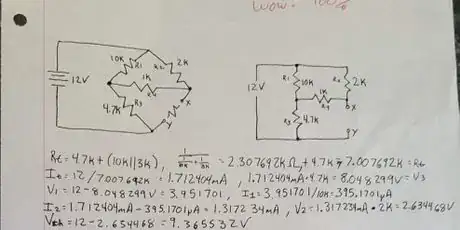 Wow. 100%
10K R1 R2 2K
12V
1K
R4
4.7K R3 X
Y
12V R1 10K R2 2K
1K
R4 X
R3 4.7K
Y
Rt = 4.7K + (10K||3K), 1/(1/10K + 1/3K) = 2.307692KΩ, + 4.7K = 7.007692K = Rt
It = 12/7.007692K = 1.712404mA, 1.712404mA • 4.7K = 8.048299V = V3
V1 = 12 - 8.048299V = 3.951701, I1 = 3.951701/10K = 395.1701µA
I2 = 1.712404mA - 395.1701µA = 1.317234mA, V2 = 1.317234mA • 2K = 2.634468V
Vth = 12 - 2.634468 = 9.365532V